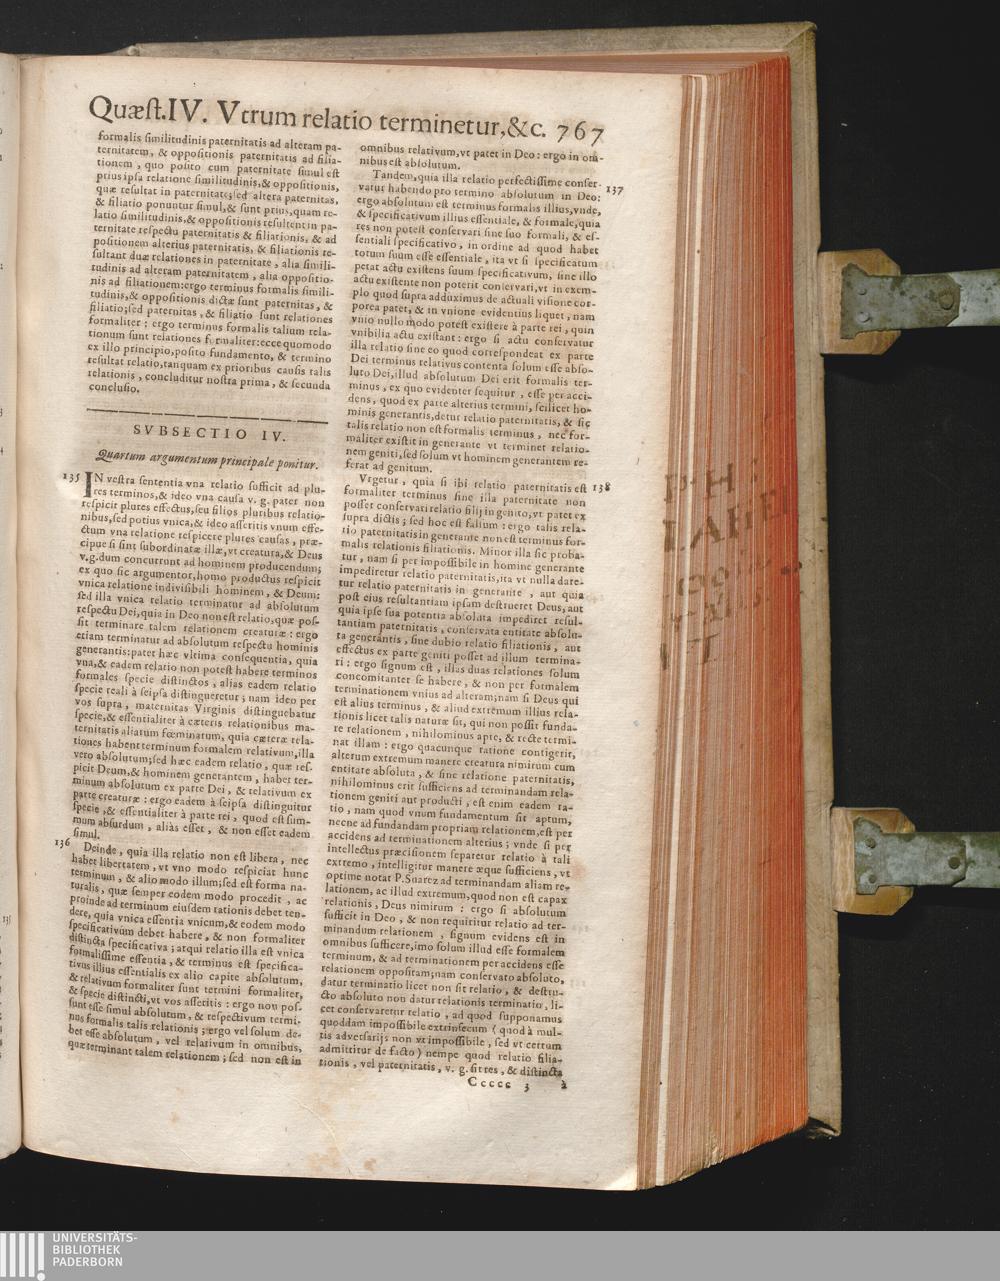 Quæst.IV. Vtrum relatio terminetur,&c. 767
formalis similitudinis paternitatis ad alteram pa-
ternitatem, & oppositionis paternitatis ad filia-
tionem, quo posito cum paternitate simul est
prius ipsa relatione similitudinis,& oppositionis,
quæ resultat in paternitate;sed altera paternitas,
& filiatio ponuntur simul,& sunt prius,quam re-
latio similitudinis,& oppositionis resultent in pa-
ternitate respectu paternitatis & filiationis, & ad
positionem alterius paternitatis, & filiationis re-
sultant duæ relationes in paternitate, alia simili-
tudinis ad alteram paternitatem, alia oppositio-
nis ad filiationem:ergo terminus formalis simili-
tudinis,& oppositionis dictæ sunt paternitas, &
filiatio;sed paternitas, & filiatio sunt relationes
formaliter; ergo terminus formalis talium rela-
tionum sunt relationes formaliter:ecce quomodo
ex illo principio,posito fundamento, & termino
resultat relatio,tanquam ex prioribus causis talis
relationis, concluditur nostra prima, & secunda
conclusio.
SVBSECTIO IV.
Quartum argumentum principale ponitur.
135 IN vestra sententia vna relatio sufficit ad plu-
res terminos,& ideo vna causa v. g. pater non
respicit plures effectus,seu filios pluribus relatio-
nibus,sed potius vnica,& ideo asseritis vnum effe-
ctum vna relatione respicere plures causas, præ-
cipue si sint subordinatæ illæ,vt creatura,& Deus
v.g.dum concurrunt ad hominem producendum;
ex quo sic argumentor,homo productus respicit
vnica relatione indivisibili hominem, & Deum:
sed illa vnica relatio terminatur ad absolutum
respectu Dei,quia in Deo non est relatio,quæ pos-
sit terminare talem relationem creaturæ: ergo
etiam terminatur ad absolutum respectu hominis
generantis:patet hæc vltima consequentia, quia
vna,& eadem relatio non potest habere terminos
formales specie distinctos, alias eadem relatio
specie reali à seipsa distingueretur; nam ideo per
vos supra, maternitas Virginis distinguebatur
specie,& essentialiter à cæteris relationibus ma-
ternitatis aliarum fœminarum, quia cæteræ rela-
tiones habent terminum formalem relativum,illa
vero absolutum;sed hæc eadem relatio, quæ res-
picit Deum,& hominem generantem, habet ter-
minum absolutum ex parte Dei, & relativum ex
parte creaturæ: ergo eadem à seipsa distinguitur
specie,& essentialiter à parte rei, quod est sum-
mum absurdum, aliàs esset, & non esset eadem
simul.
136 Deinde, quia illa relatio non est libera, nec
habet libertatem, vt vno modo respiciat hunc
terminum, & alio modo illum;sed est forma na-
turalis, quæ semper eodem modo procedit, ac
proinde ad terminum eiusdem rationis debet ten-
dere, quia vnica essentia vnicum,& eodem modo
specificativum debet habere, & non formaliter
distincta specificativa; atqui relatio illa est vnica
formalissime essentia, & terminus est specifica-
tivus illius essentialis ex alio capite absolutum,
& relativum formaliter sunt termini formaliter,
& specie distincti,vt vos asseritis: ergo non pos-
sunt esse simul absolutum, & respectivum termi-
nus formalis talis relationis; ergo vel solum de-
bet esse absolutum, vel relativum in omnibus,
quæ terminant talem relationem; sed non est in
omnibus relativum,vt patet in Deo: ergo in om-
nibus est absolutum.
Tandem,quia illa relatio perfectissime conser- 137
vatur habendo pro termino absolutum in Deo:
ergo absolutum est terminus formalis illius,vnde,
& specificativum illius essentiale, & formale,quia
res non potest conservari sine suo formali, & es-
sentiali specificativo, in ordine ad quod habet
totum suum esse essentiale, ita vt si specificatum
petat actu existens suum specificativum, sine illo
actu existente non poterit conservari,vt in exem-
plo quod supra adduximus de actuali visione cor-
porea patet, & in vnione evidentius liquet, nam
vnio nullo modo potest existere à parte rei, quin
vnibilia actu existant: ergo si actu conservatur
illa relatio sine eo quod correspondeat ex parte
Dei terminus relativus contenta solum esse abso-
luto Dei,illud absolutum Dei erit formalis ter-
minus, ex quo evidenter sequitur, esse per acci-
dens, quod ex parte alterius termini, scilicet ho-
minis generantis,detur relatio paternitatis, & sic
talis relatio non est formalis terminus, nec for-
maliter existit in generante vt terminet relatio-
nem geniti,sed solum vt hominem generantem re-
ferat ad genitum.
Vrgetur, quia si ibi relatio paternitatis est 138
formaliter terminus sine illa paternitate non
posset conservari relatio filij in genito,vt patet ex
supra dictis; sed hoc est falsum: ergo talis rela-
tio paternitatis in generante non est terminus for-
malis relationis filiationis. Minor illa sic proba-
tur, nam si per impossibile in homine generante
impediretur relatio paternitatis,ita vt nulla dare-
tur relatio paternitatis in generante, aut quia
post eius resultantiam ipsam destrueret Deus,aut
quia ipse sua potentia absoluta impediret resul-
tantiam paternitatis, conservata entitate absolu-
ta generantis, sine dubio relatio filiationis, aut
effectus ex parte geniti posset ad illum termina-
ri: ergo signum est, illas duas relationes solum
concomitanter se habere, & non per formalem
terminationem vnius ad alteram;nam si Deus qui
est alius terminus, & aliud extremum illius rela-
tionis licet talis naturæ sit, qui non possit funda-
re relationem, nihilominus apte, & recte termi-
nat illam: ergo quacunque ratione contigerit,
alterum extremum manere creatura nimirum cum
entitate absoluta, & sine relatione paternitatis,
nihilominus erit sufficiens ad terminandam rela-
tionem geniti aut producti, est enim eadem ra-
tio, nam quod vnum fundamentum sit aptum,
necne ad fundandam propriam relationem,est per
accidens ad terminationem alterius; vnde si per
intellectus præcisionem separetur relatio à tali
extremo, intelligitur manere æque sufficiens, vt
optime notat P.Suarez ad terminandam aliam re-
lationem, ac illud extremum,quod non est capax
relationis, Deus nimirum: ergo si absolutum
sufficit in Deo, & non requiritur relatio ad ter-
minandum relationem, signum evidens est in
omnibus sufficere,imo solum illud esse formalem
terminum, & ad terminationem per accidens esse
relationem oppositam;nam conservato absoluto,
datur terminatio licet non sit relatio, & destru-
cto absoluto non datur relationis terminatio, li-
cet conservaretur relatio, ad quod supponamus
quoddam impossibile extrinsecum (quod à mul-
tis adversarijs non vt impossibile, sed vt certum
admittitur de facto) nempe quod relatio filia-
tionis, vel paternitatis, v. g. sit res, & distincta
Ccccc 3 à
UNIVERSITÄTS-
BIBLIOTHEK
PADERBORN